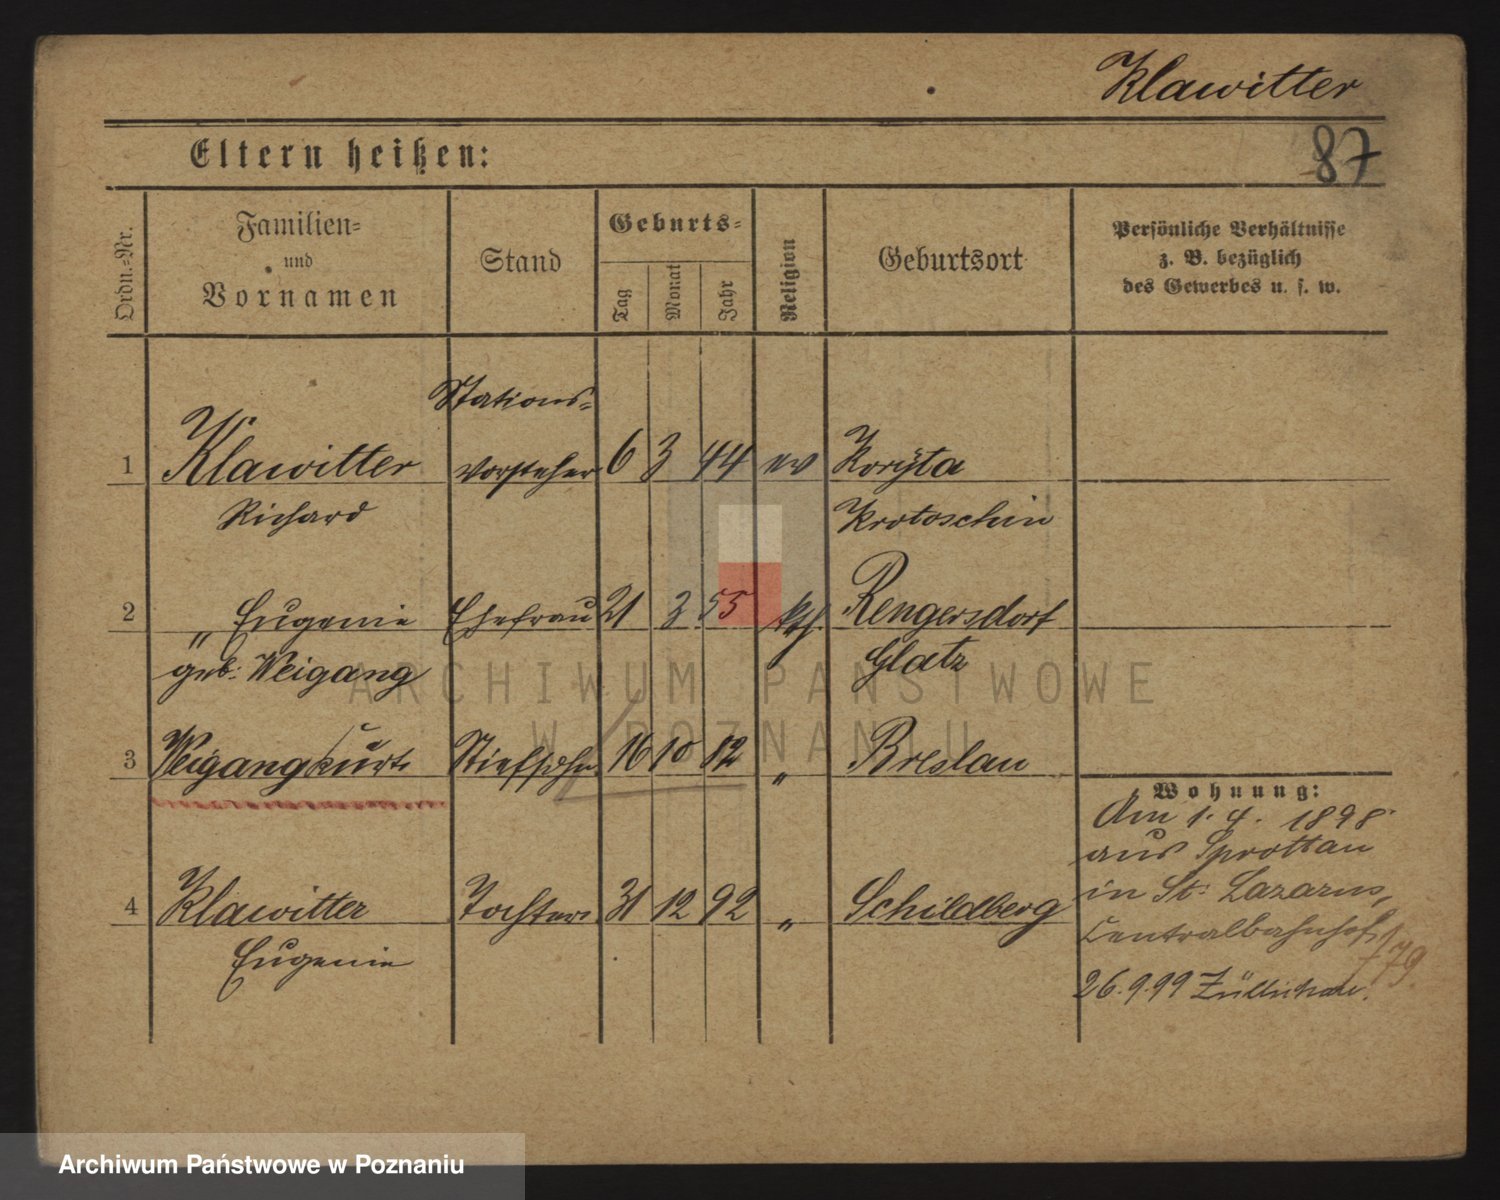 Klawitter
87
Eltern heißen:
Ordn.-Nr.
Familien-
und
Vornamen
Stand
Geburts-
Tag
Monat
Jahr
Religion
Geburtsort
Persönliche Verhältnisse
z. B. bezüglich
des Gewerbes u. s. w.
Stations-
1 Klawitter vorsteher 6 3 44 ev Koryta
Richard Krotoschin
2 " Eugenie Ehefrau 21 3 55 kth. Rengersdorf
geb. Weigang Glatz
3 Weigang Kurt Stiefsohn 16 10 82 " Breslau
Wohnung:
Am 1. 4. 1898
aus Sprottau
in St. Lazarus,
Centralbahnhof
4 Klawitter Tochter 31 12 92 " Schildberg
Eugenie
779
26.9.99 Züllichau.
ARCHIWUM PAŃSTWOWE
W POZNANIU
Archiwum Państwowe w Poznaniu